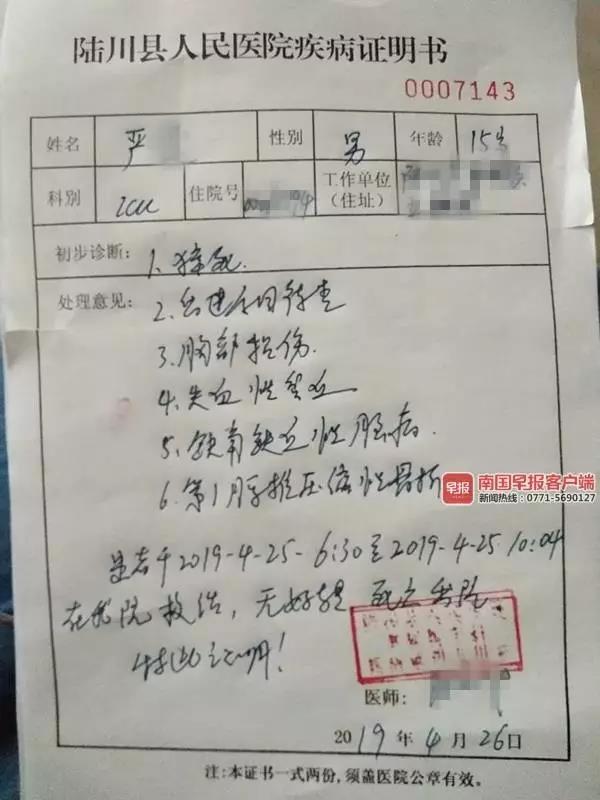 陆川县人民医院疾病证明书
0007143
姓名 严 性别 男 年龄 15岁
科别 ICU 住院号 工作单位(住址)
初步诊断: 1.猝死.
处理意见: 2.出血原因待查
3.胸部损伤.
4.失血性贫血
5.缺氧缺血性脑病.
6.第1腰椎压缩性骨折
早报 南国早报客户端
新闻热线:0771-5690127
患者于2019-4-25-6:30至2019-4-25.10:04
在我院救治,无好转 死亡出院
特此证明!
医师:
2019年4月26日
注:本证书一式两份,须盖医院公章有效。